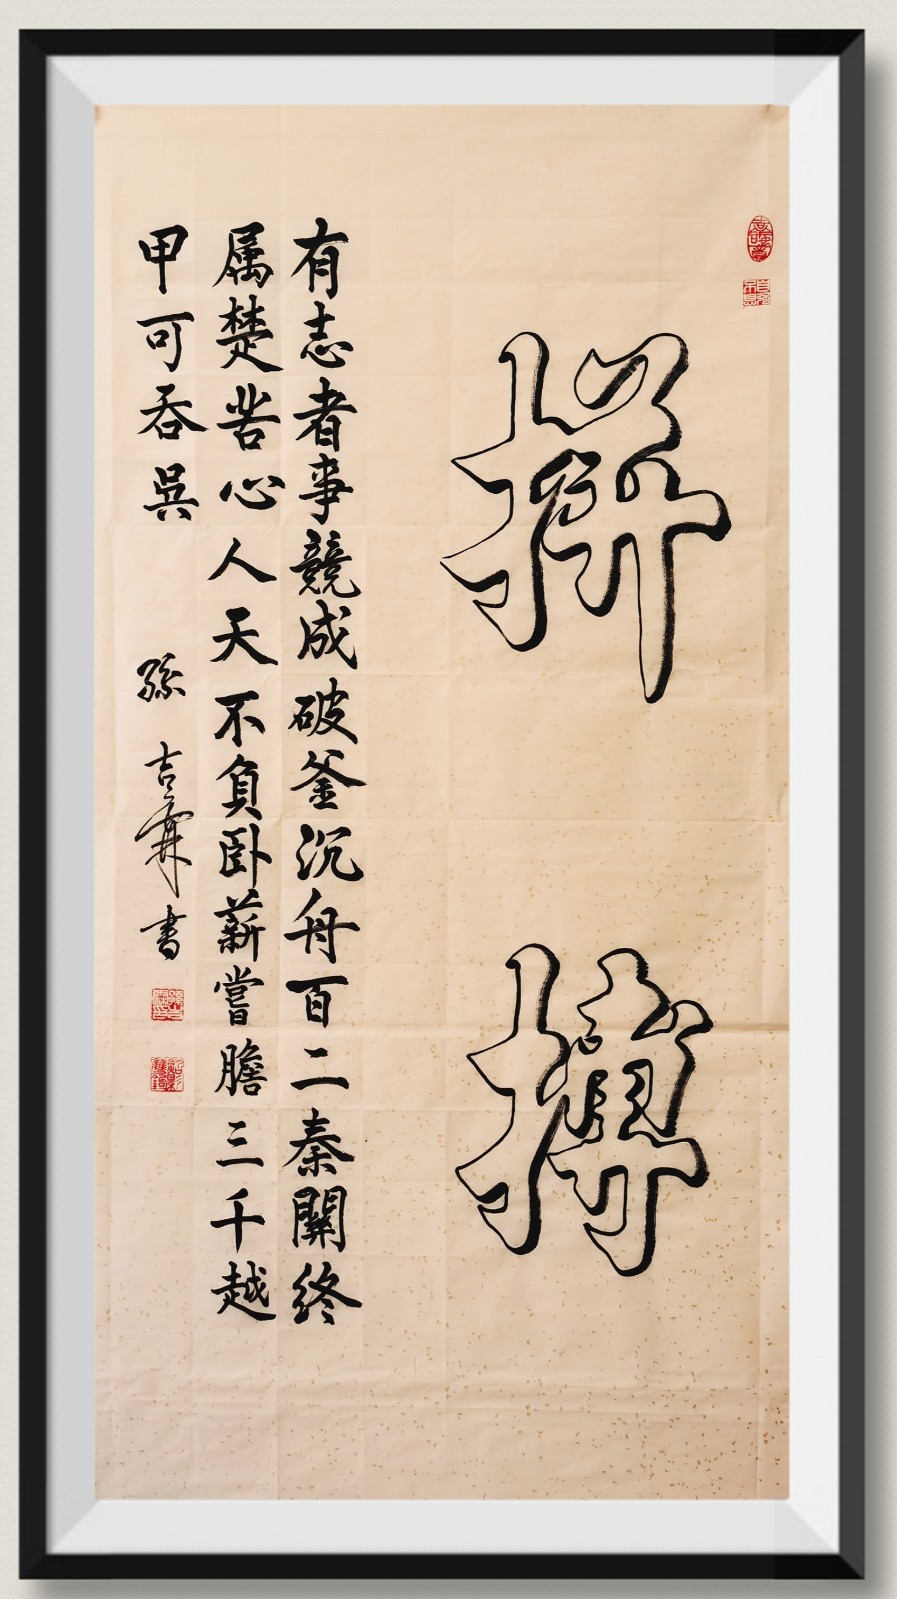 拼搏
有志者事競成破釜沉舟百二秦關終
属楚苦心人天不負卧薪嘗膽三千越
甲可吞吳
孫吉霖書